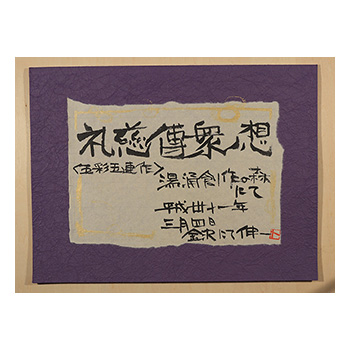 礼慈傳衆想
〈五彩五連作〉
湯涌創作の森
にて
平成廿十一年
三月四日
金沢にて伸一